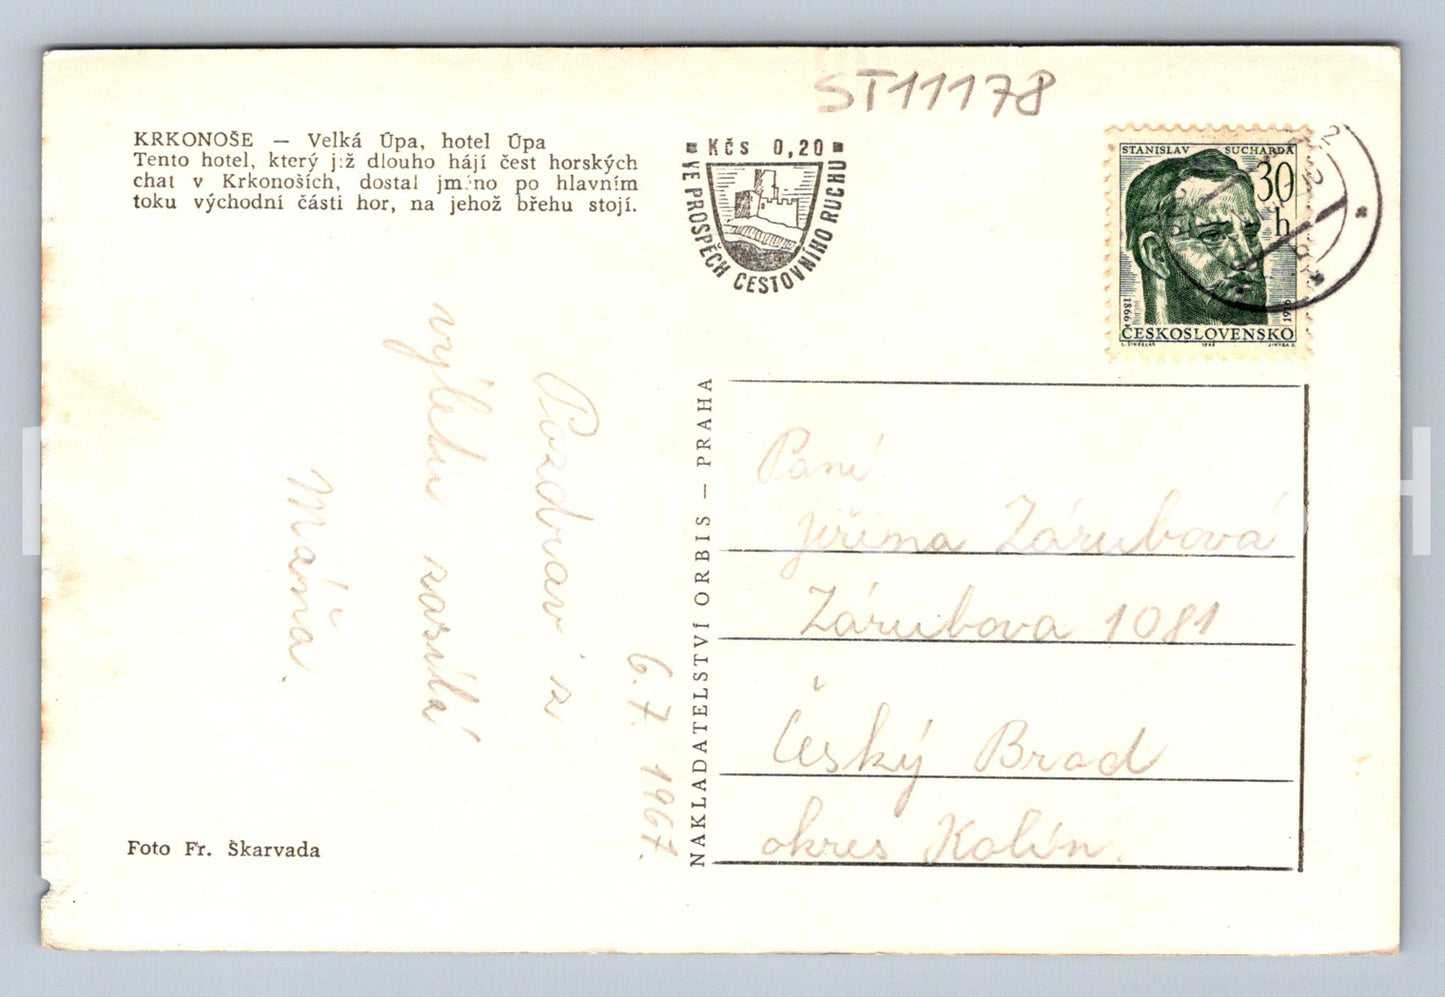 ST11178
KRKONOŠE — Velká Úpa, hotel Úpa
Tento hotel, který již dlouho hájí čest horských
chat v Krkonoších, dostal jméno po hlavním
toku východní části hor, na jehož břehu stojí.
Kčs 0,20
VE PROSPĚCH CESTOVNÍHO RUCHU
STANISLAV SUCHARDA
30 h
1866
ČESKOSLOVENSKO
Pozdrav z
výletu zasílá
Máňa.
6.7. 1967.
NAKLADATELSTVÍ ORBIS — PRAHA
Paní
Jiřina Zárubová
Zárubova 1081
Český Brod
okres Kolín.
Foto Fr. Škarvada